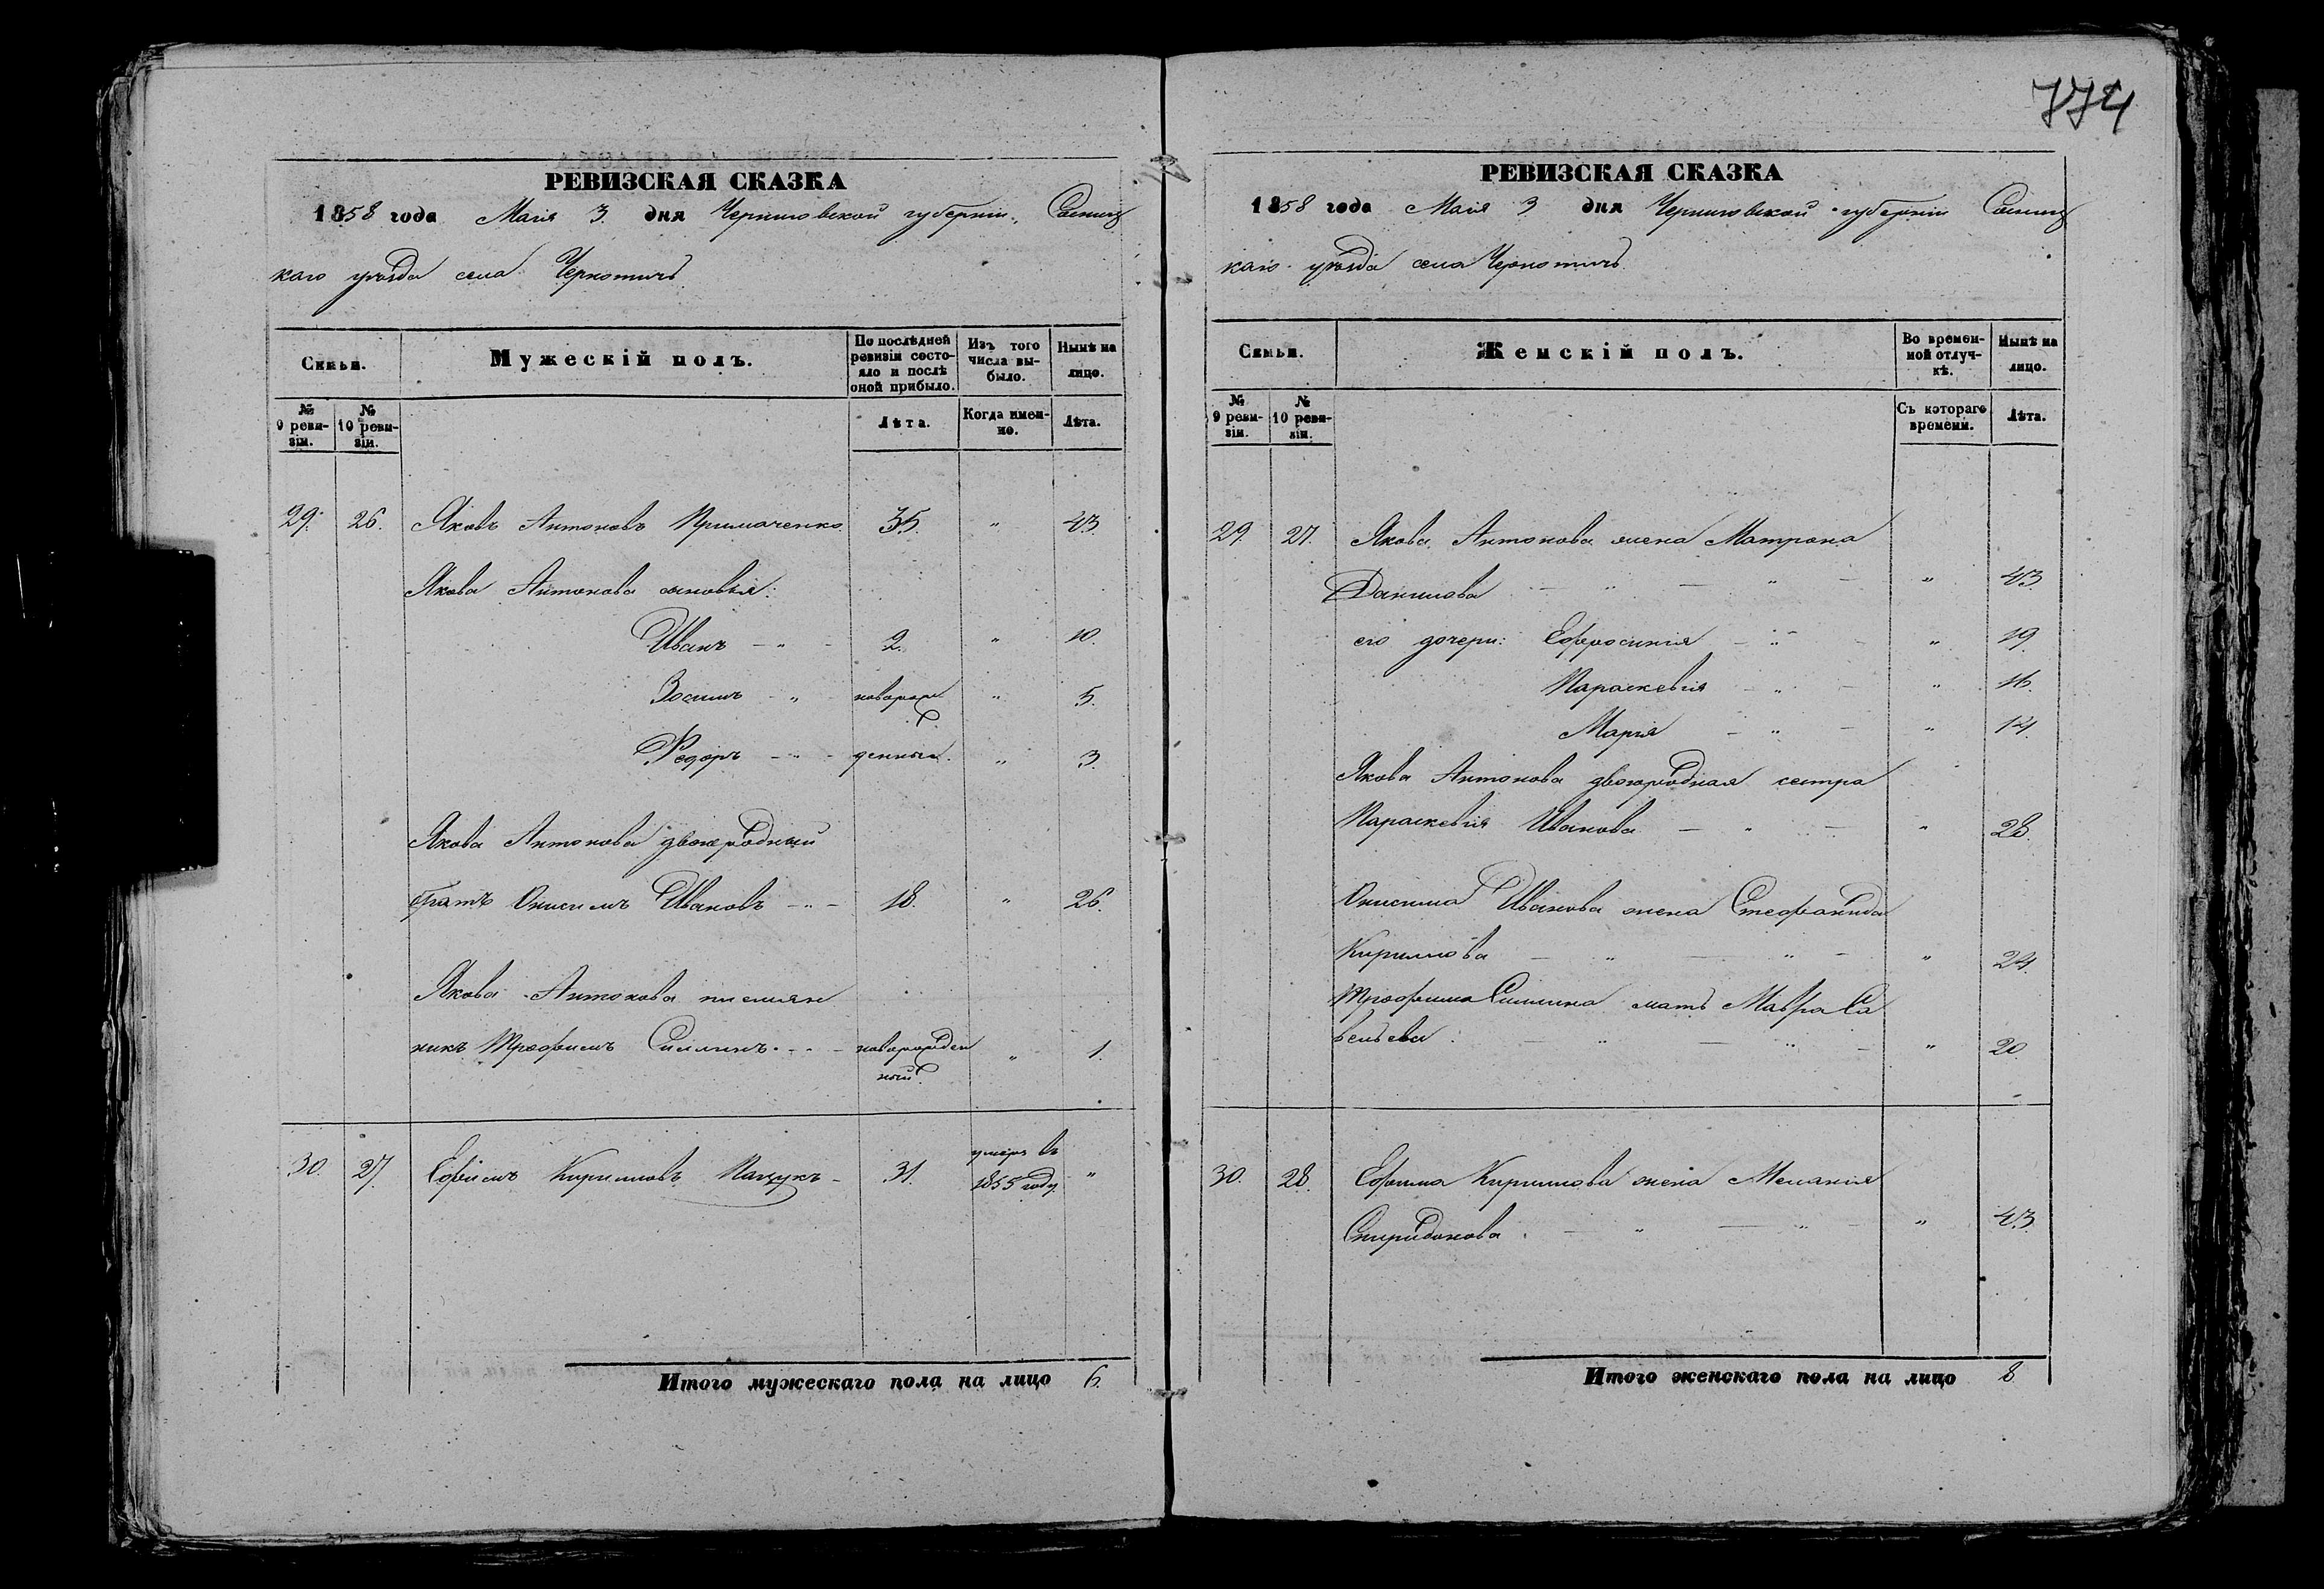 774
РЕВИЗСКАЯ СКАЗКА
1858 года Маія 3 дня Черниговской губерніи, Сосниц
каго уѣзда села Чернотичъ
Семьи.
Мужескій полъ.
По послѣдней ревизіи состояло и послѣ оной прибыло.
Изъ того числа выбыло.
Нынѣ на лицо.
№ 9 ревизіи.
№ 10 ревизіи.
Лѣта.
Когда именно.
Лѣта.
29. 26. Яковъ Антоновъ Примаченко 35. " 43.
Якова Антонова сыновья:
Иванъ - " - 2. " 10.
Зосимъ - " новорож " 5.
Ѳедоръ - " - денные. " 3.
Якова Антонова двоюродный
братъ Онисимъ Ивановъ - " - 18. " 26.
Якова Антонова племян
никъ Трофимъ - " - новорожден " 1.
ный.
30. 27. Ефимъ Кирилловъ Пащукъ - 31. умеръ въ "
1855 году
Итого мужескаго пола на лицо 6.
РЕВИЗСКАЯ СКАЗКА
1858 года Маія 3 дня Черниговской губерніи Сосниц
каго уѣзда села Чернотичъ
Семьи.
Женскій полъ.
Во временной отлучкѣ.
Нынѣ на лицо.
№ 9 ревизіи.
№ 10 ревизіи.
Съ котораго времени.
Лѣта.
29. 27. Якова Антонова жена Матрона
Данилова - " - " - " 43
его дочери: Ефросинія - " - " 19
Параскевія - " - " 16.
Марія - " - " 14.
Якова Антонова двоюродная сестра
Параскевія Иванова - " - " 28.
Онисима Иванова жена Стефанида
Кириллова - " - " - " 24.
Трофима мать Мавра Са
вельева: - " - " - " 20.
30. 28. Ефима Кириллова жена Меланія
Спиридонова - " - " " 43.
Итого женскаго пола на лицо 8.